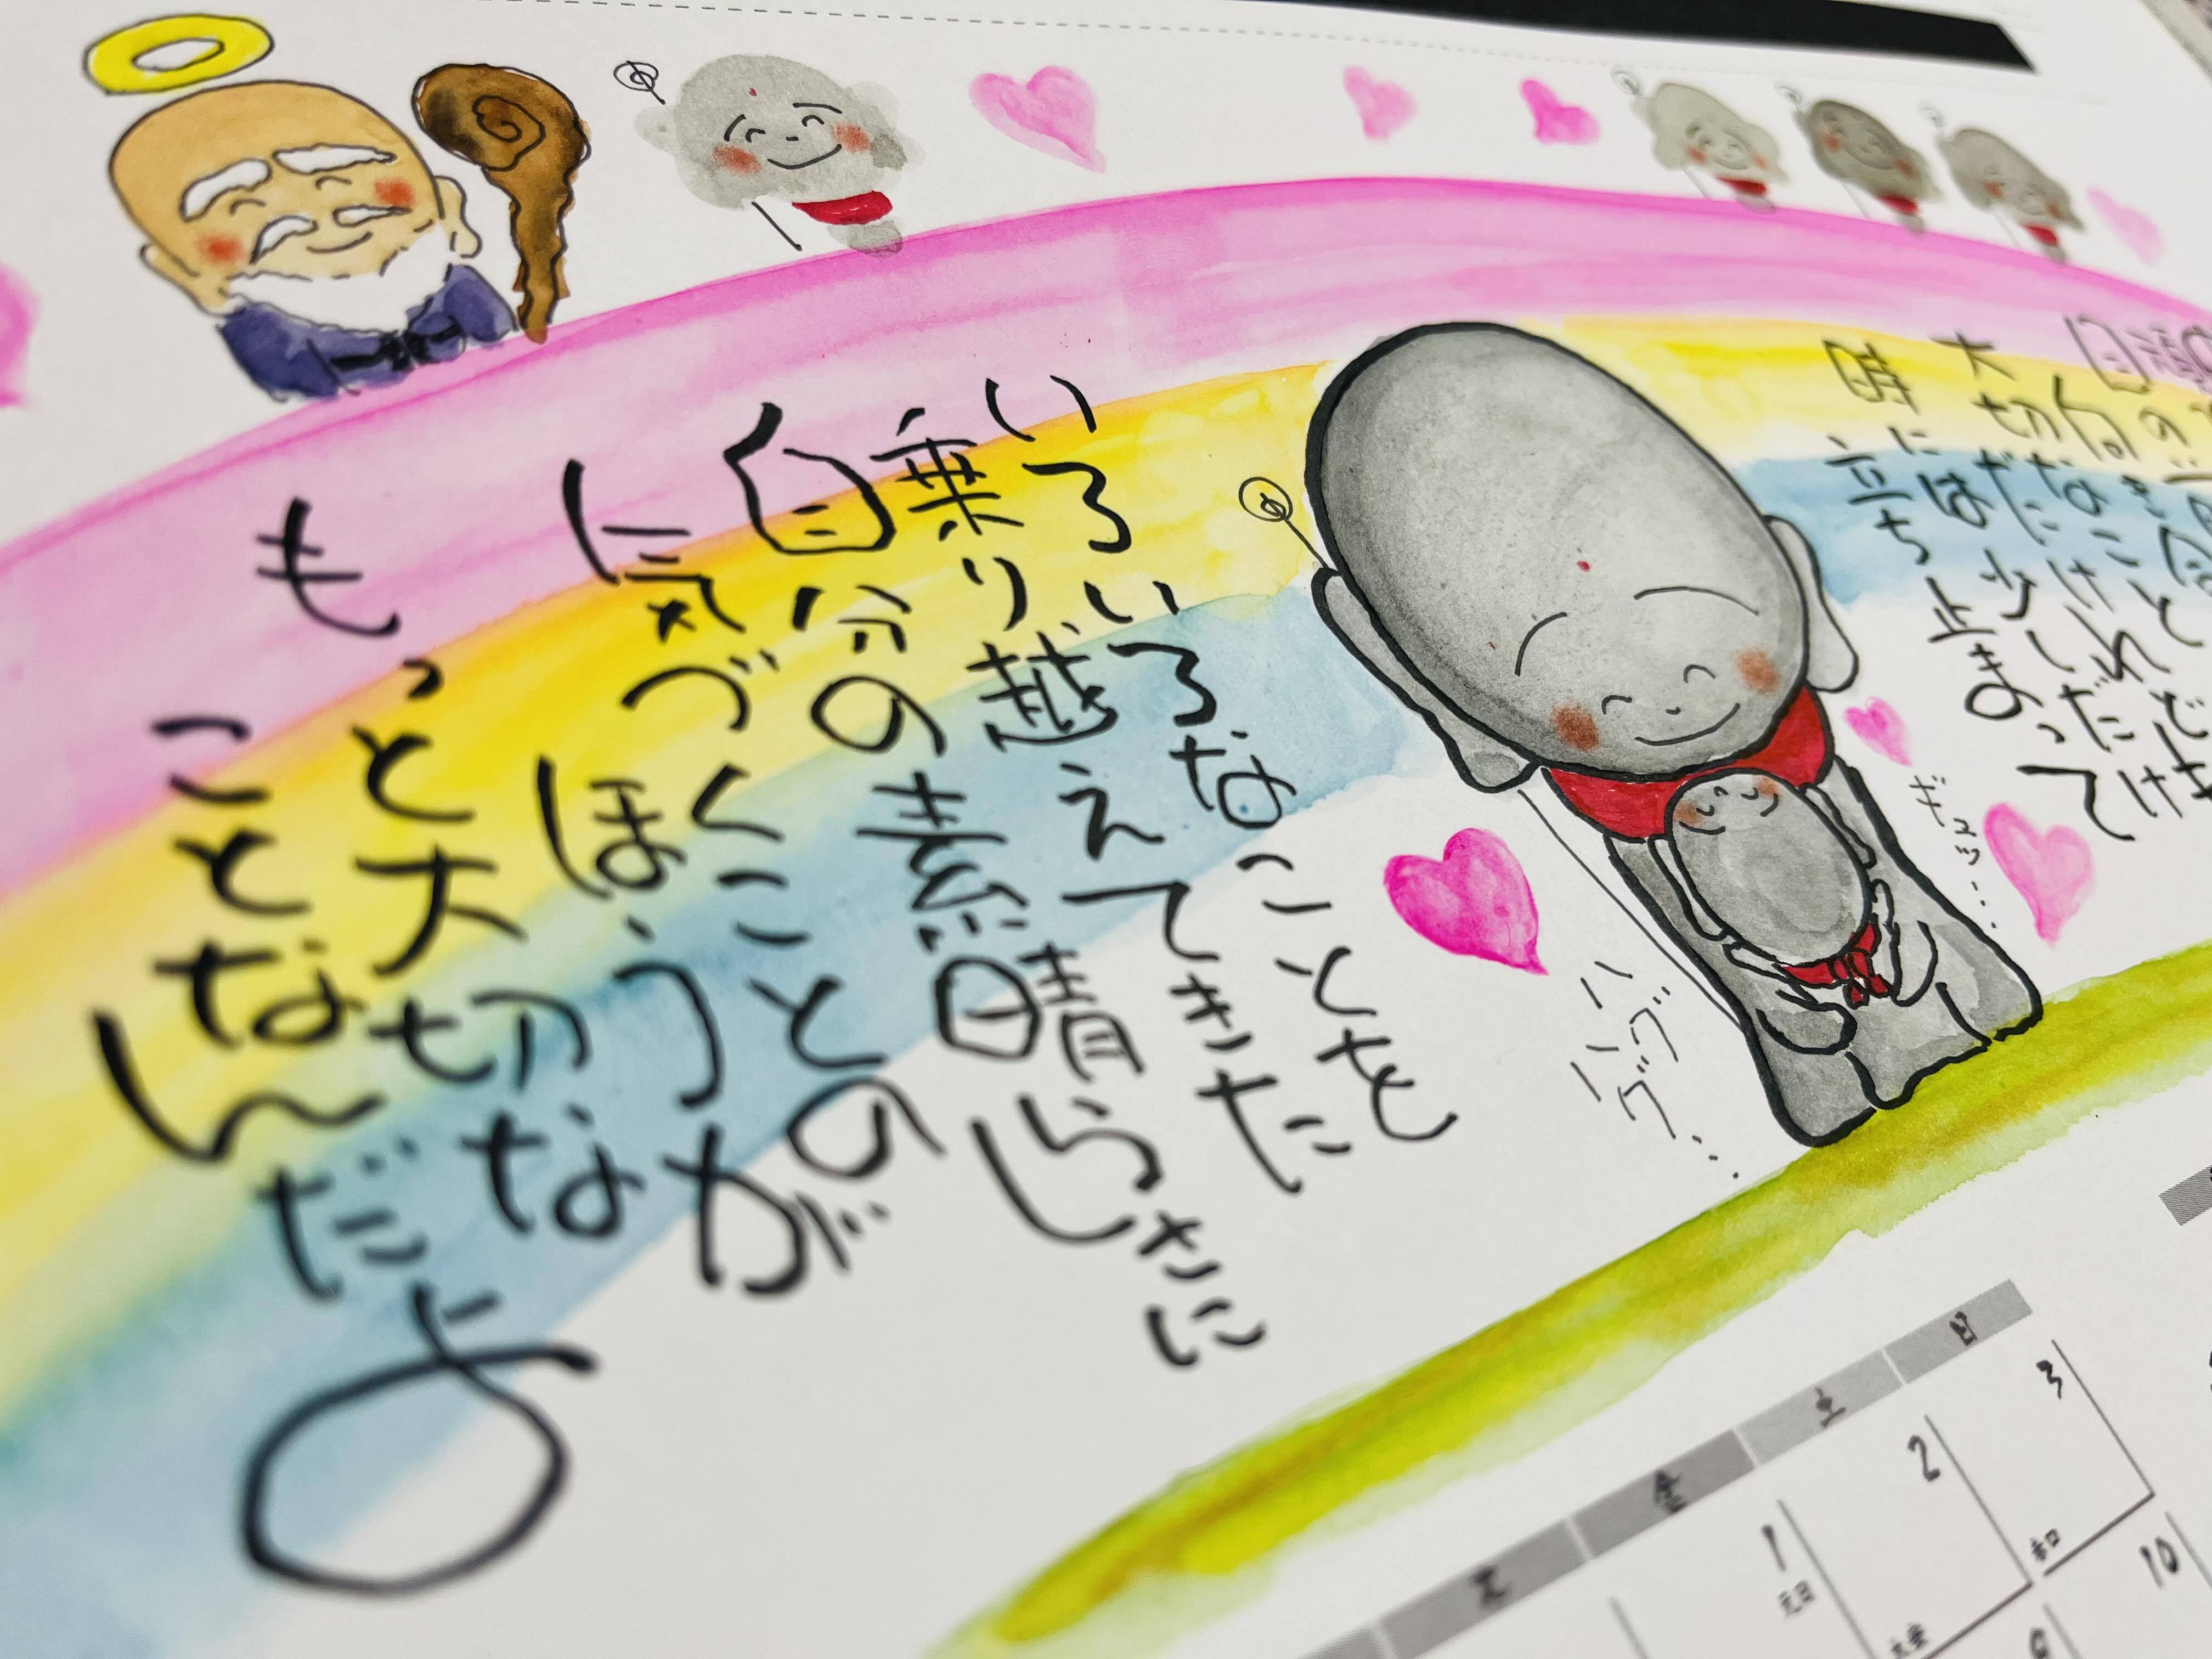 大切なことだけれど
時には少しだけ
立ち止まって
ギュッ…
ハグ
ハグ…
いろいろなことを
乗り越えてきた
自分の素晴らしさに
気づくことの
ほうが
もっと大切な
ことなんだよ
金 土 日
1 2 3
元日 大安 赤口
9 10